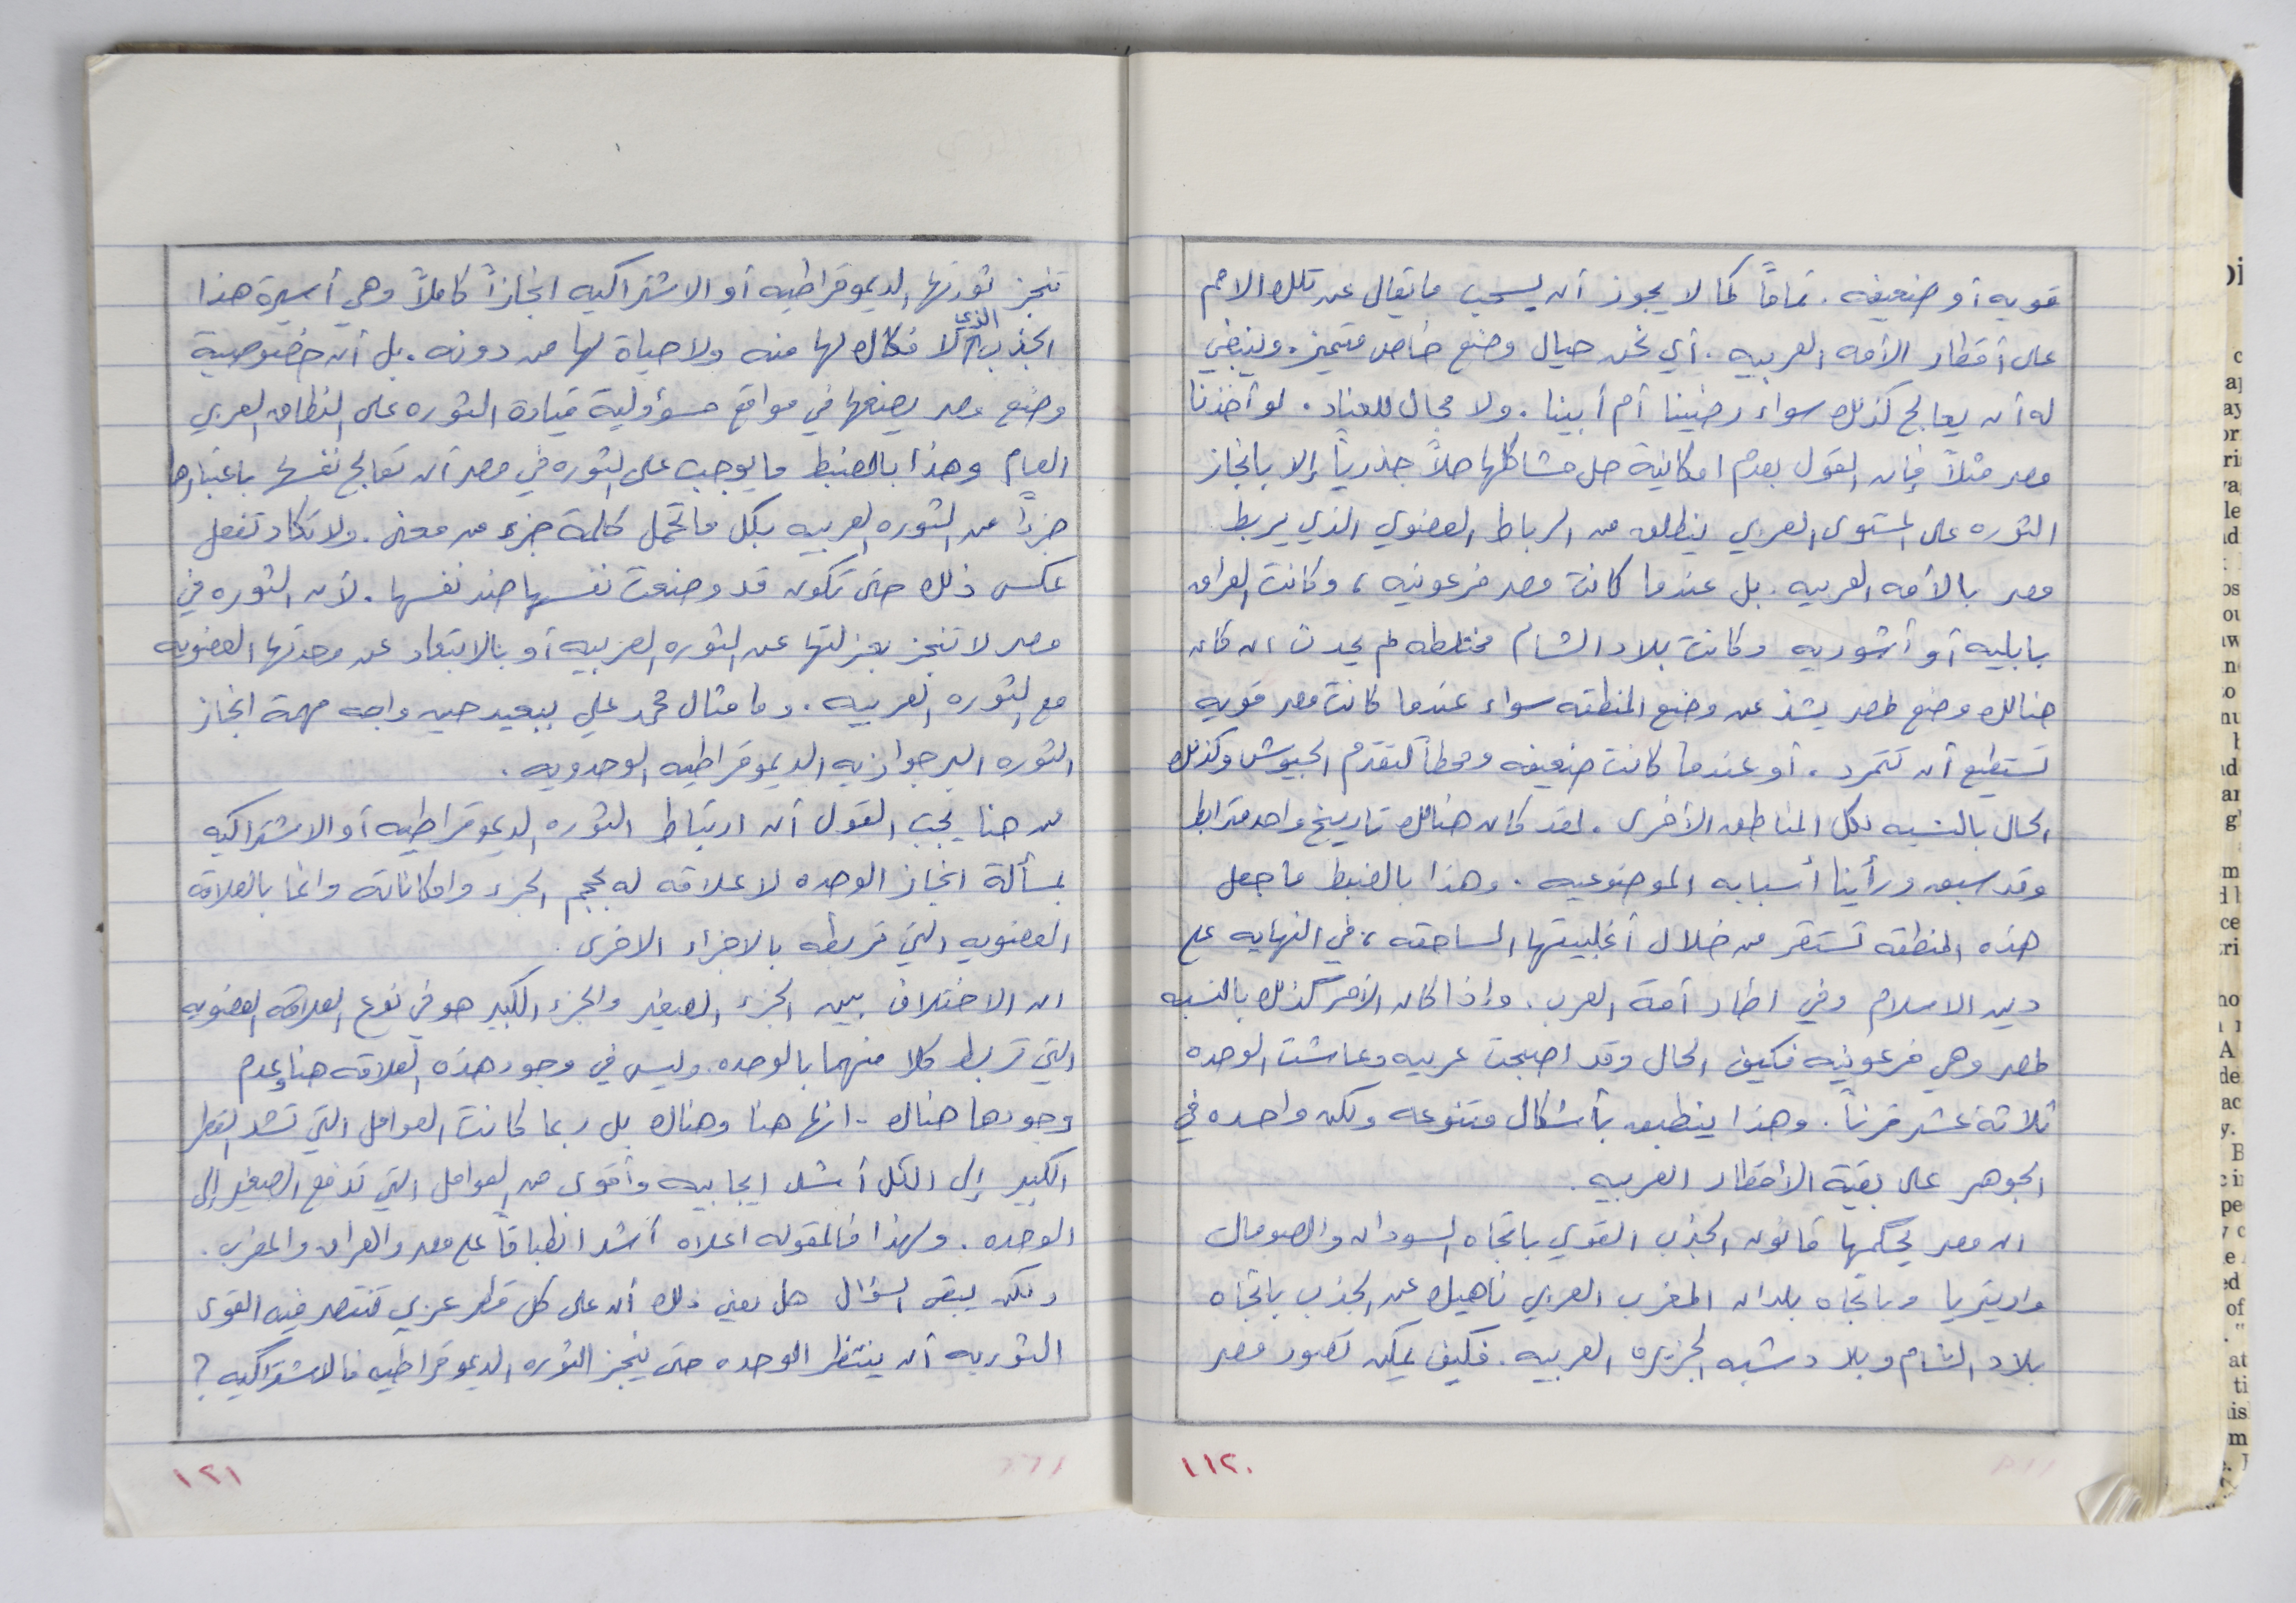 قويه أو ضعيفه. تماماً كما لا يجوز أن يسحب ما يقال عن تلك الامم
على أقطار الأمه العربيه. أي نحن حيال وضع خاص متميز. وينبغي
له أن يعالج كذلك سواء رضينا أم أبينا. ولا مجال للعناد. لو أخذنا
مصر مثلاً فإن القول بعدم امكانية حل مشاكلها حلاً جذرياً إلا بانجاز
الثوره على المستوى العربي ينطلق من الرباط العضوي الذي يربط
مصر بالأمه العربيه. بل عندما كانت مصر فرعونيه، وكانت العراق
بابليه أو أشوريه وكانت بلاد الشام مختلطه لم يحدث ان كان
هنالك وضع لمصر يشذ عن وضع المنطقه سواء عندما كانت مصر قويه
تستطيع أن تتمرد. أو عندما كانت ضعيفه ومحطاً لتقدم الجيوش وكذلك
الحال بالنسبه لكل المناطق الأخرى. لقد كان هنالك تاريخ واحد مترابط
وقد سبق ورأينا أسبابه الموضوعيه. وهذا بالضبط ما جعل
هذه المنطقه تستقر من خلال أغلبيتها الساحقه، في النهايه على
دين الاسلام وفي اطار أمة العرب. وإذا كان الأمر كذلك بالنسبه
لمصر وهي فرعونيه فكيف الحال وقد اصبحت عربيه وعاشت الوحده
ثلاثة عشر قرناً. وهذا ينطبق بأشكال متنوعه ولكن واحده في
الجوهر على بقية الأقطار العربيه.
ان مصر يحكمها قانون الجذب القوي باتجاه السودان والصومال
واريتريا وباتجاه بلدان المغرب العربي ناهيك عن الجذب باتجاه
بلاد الشام وبلاد شبه الجزيرة العربيه. فكيف يمكن تصور مصر
١١٢٠
تنجز ثورتها الديموقراطيه أو الاشتراكيه انجازاً كاملاً وهي أسيرة هذا
الجذب الذي لا فكاك لها منه ولا حياة لها من دونه. بل أن خصوصية
وضع مصر يضعها في مواقع مسؤولية قيادة الثوره على النطاق العربي
العام وهذا بالضبط ما يوجب على الثوره في مصر أن تعالج نفسها باعتبارها
جزءاً من الثوره العربيه بكل ما تحمل كلمة جزء من معنى. ولا تكاد تفعل
عكس ذلك حتى تكون قد وضعت نفسها ضد نفسها. لأن الثوره في
مصر لا تنجز بعزلتها عن الثوره العربيه أو بالابتعاد عن وحدتها العضويه
مع الثوره العربيه. وما مثال محمد علي ببعيد حين واجه مهمة انجاز
الثوره البرجوازيه الديموقراطيه الوحدويه.
من هنا يجب القول أن ارتباط الثوره الديموقراطيه أو الاشتراكيه
بمسألة انجاز الوحده لا علاقه له بحجم الجزء وامكاناته وانما بالعلاقه
العضويه التي تربطه بالاجزاء الاخرى.
ان الاختلاف بين الجزء الصغير والجزء الكبير هو في نوع العلاقه العضويه
التي تربط كلا منهما بالوحده. وليس في وجود هذه العلاقه هنا وعدم
وجودها هناك. انها هنا وهناك بل ربما كانت العوامل التي تشد القطر
الكبير إلى الكل أشد ايجابيه وأقوى من العوامل التي تدفع الصغير إلى
الوحده. ولهذا فالمقوله اعلاه أشد انطباقاً على مصر والعراق والمغرب.
ولكن يبقى السؤال هل يعني ذلك أن على كل قطر عربي تنتصر فيه القوى
الثوريه أن ينتظر الوحده حتى ينجز الثوره الديموقراطيه فالاشتراكيه؟
١٢١